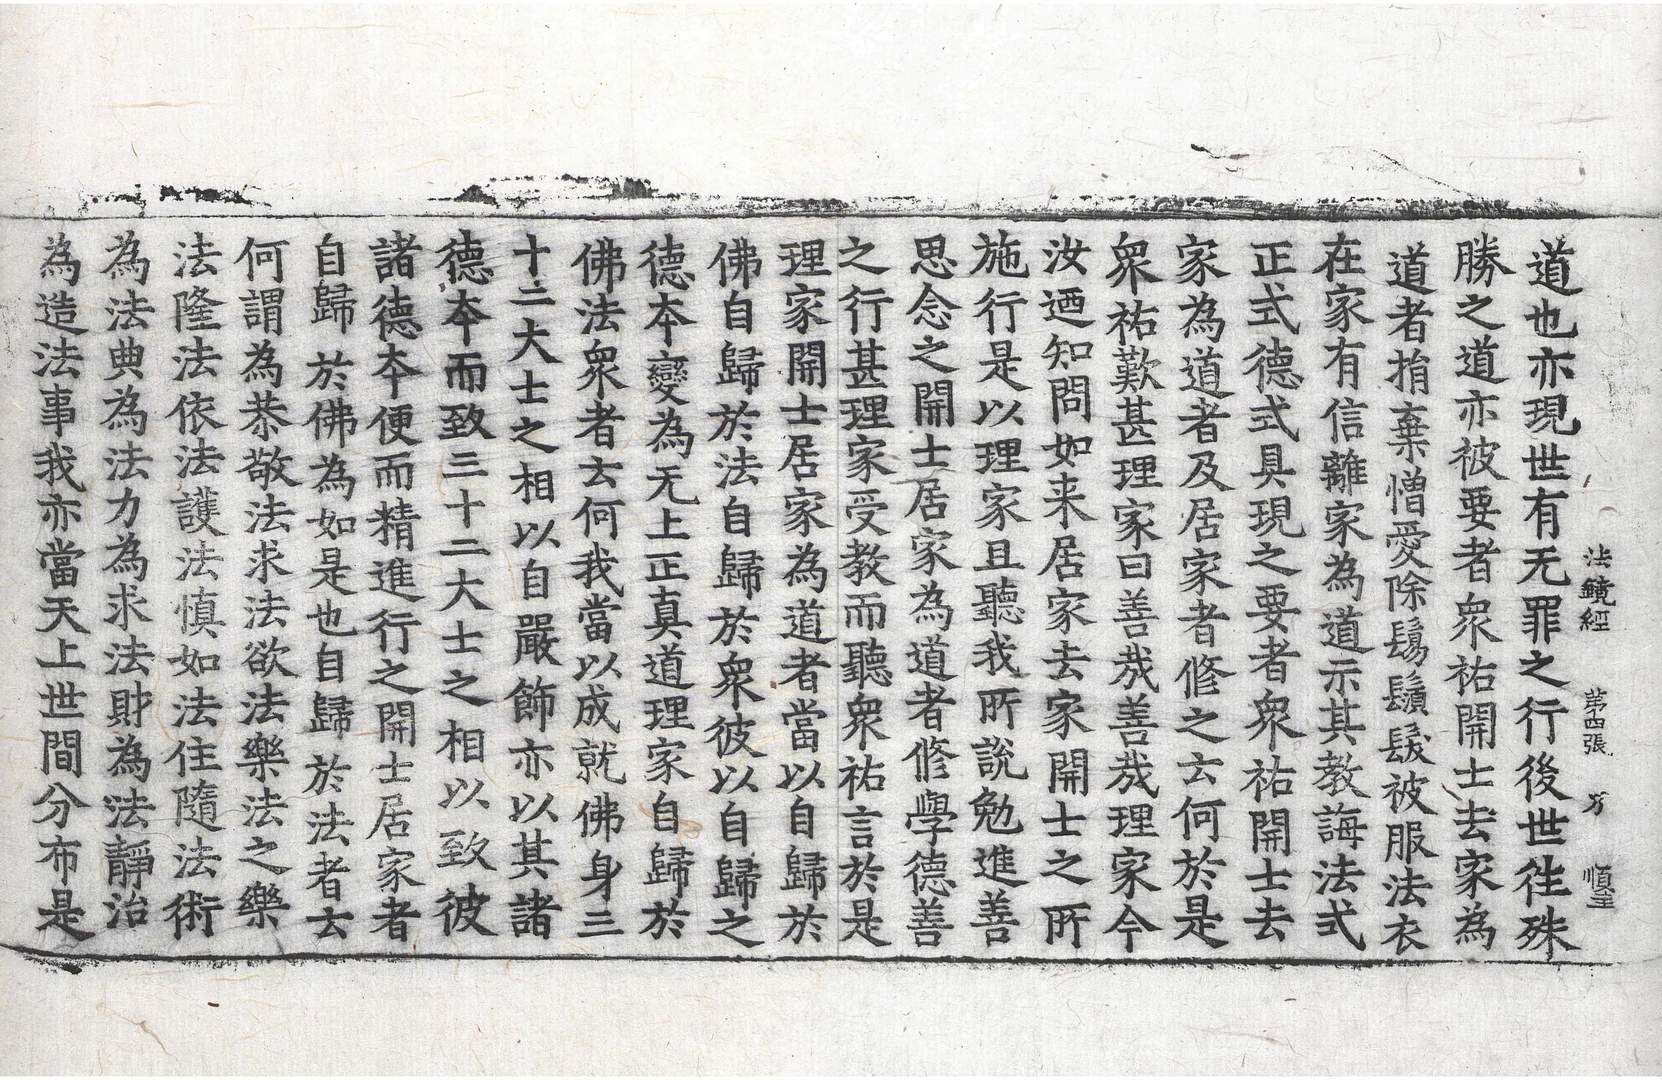 法鏡經 第四張 万
道也亦現世有无罪之行後世徃殊
勝之道亦被要者衆祐開士去家為
道者捎棄憎愛除鬄鬚髮被服法衣
在家有信離家為道示其教誨法式
正式德式具現之要者衆祐開士去
家為道者及居家者修之云何於是
衆祐歎甚理家曰善哉善哉理家今
汝迺知問如来居家去家開士之所
施行是以理家且聽我所説勉進善
思念之開士居家為道者修學德善
之行甚理家受教而聽衆祐言於是
理家開士居家為道者當以自歸於
佛自歸於法自歸於衆彼以自歸之
德本變為无上正真道理家自歸於
佛法衆者云何我當以成就佛身三
十二大士之相以自嚴飾亦以其諸
德本而致三十二大士之相以致彼
諸德本便而精進行之開士居家者
自歸於佛為如是也自歸於法者云
何謂為恭敬法求法欲法樂法之樂
法隆法依法護法慎如法住隨法術
為法典為法力為求法財為法靜治
為造法事我亦當天上世間分布是